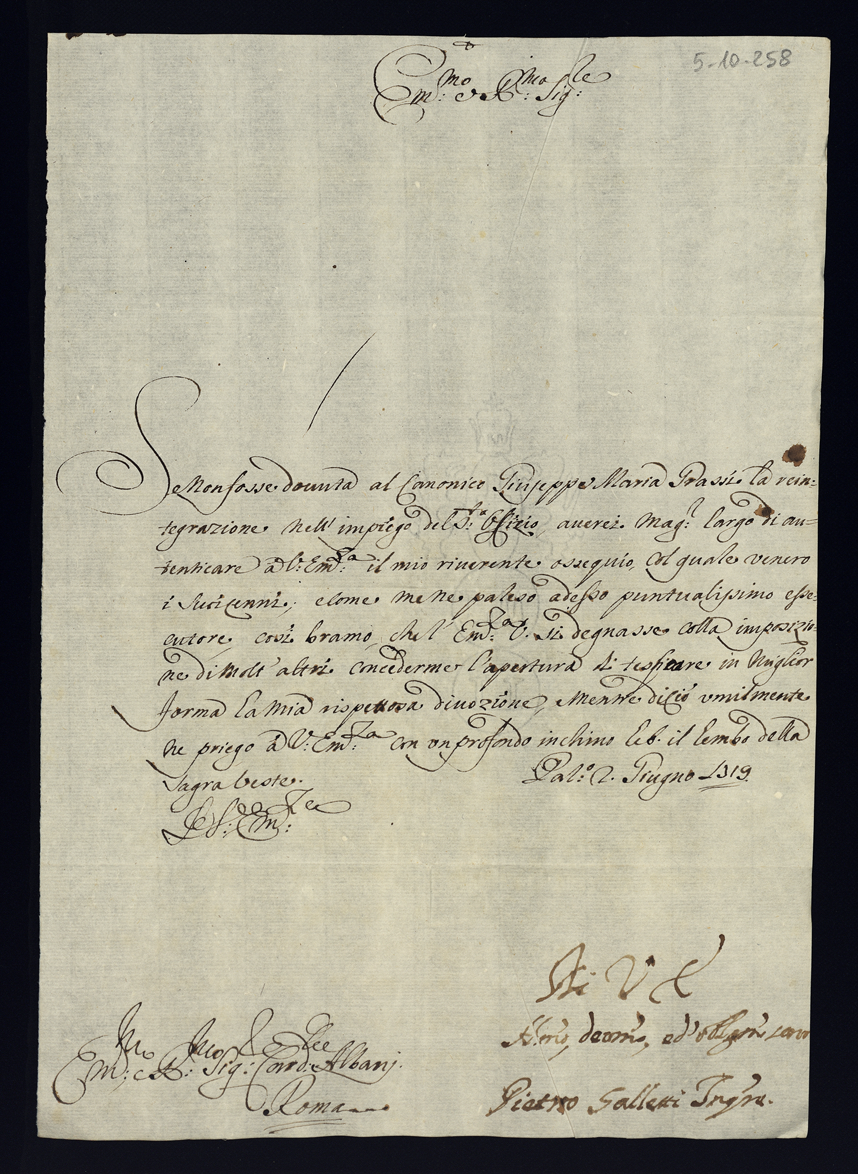 5-10-258
Em:mo e R:mo Sig:re
Se Non fosse dovuta al Canonico Giuseppe Maria Grassi la rein-
tegrazione nell' impiego del S:to Ofizio, averei mag:r largo di au-
tenticare à V: Em:za il mio riverente ossequio, col quale venero
i Suoi cenni; e come me ne paleso adesso puntualissimo esse-
cutore, così bramo, che l' Em:za V. si degnasse colla imposizio-
ne di molt' altri concederme l'apertura di testificare in miglior
forma la mia rispettosa divozione, Mentre di ciò umilmente
ne priego à V: Em:za con un profondo inchino le b. il lembo della
Sagra veste.
Pal:o 2. Giugno 1719.
D V: Em:za
Di V E
H:mo, devmo, ed oblgmo serv
Em:mo e R:mo Sig:re Card:le Albanj.
Roma
Pietro Galletti Inq:re.